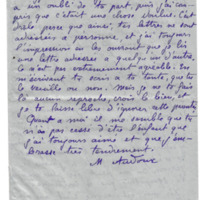 à un oubli de ta part, puis j'ai com-
pris que c'était une chose voulue. Cela
laisse penser que ainsi tes lettres ne sont
adressées à personne, et j'ai toujours
l'impression en les ouvrant que je lis
une lettre adressée à quelqu'un d'autre.
Ce n'est pas extrêmement agréable. En
m'écrivant tu écris à ta tante, que tu
le veuilles ou non. Mais je ne te fais
là aucun reproche, crois le bien, et
je te laisse libre d'ignorer cette parenté.
Quant à moi il me semble que tu
n'as pas cessé d'être l'enfant que
j'ai toujours aimé et que j'em-
brasse très tendrement.
M Audoux